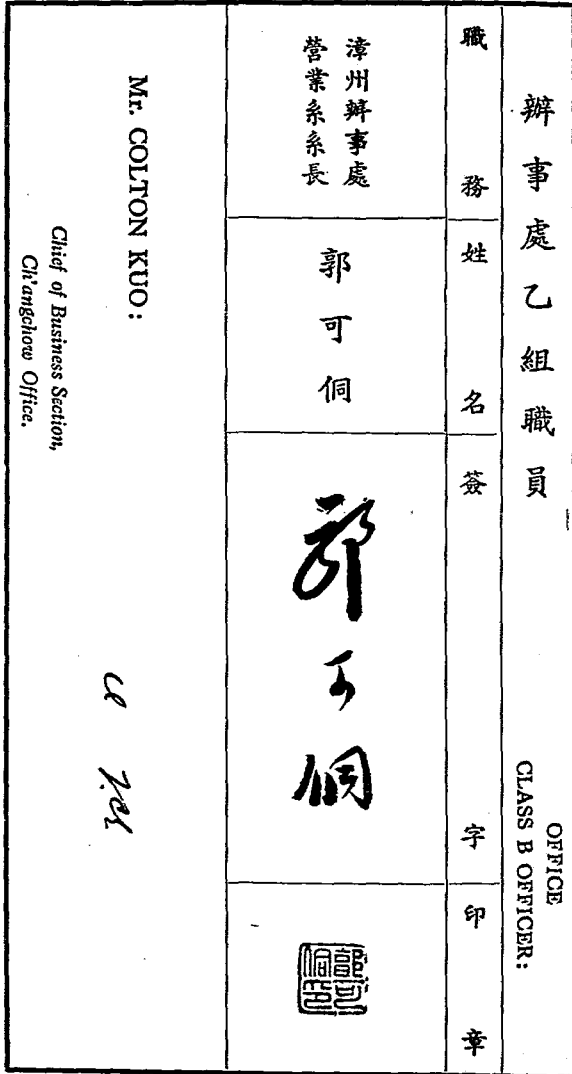 辦事處乙組職員
OFFICE
CLASS B OFFICER:
職務
姓名
簽字
印章
漳州辦事處
營業系系長
郭可侗
郭可侗
郭可侗印
Mr. COLTON KUO:
Chief of Business Section,
Ch'angchow Office.